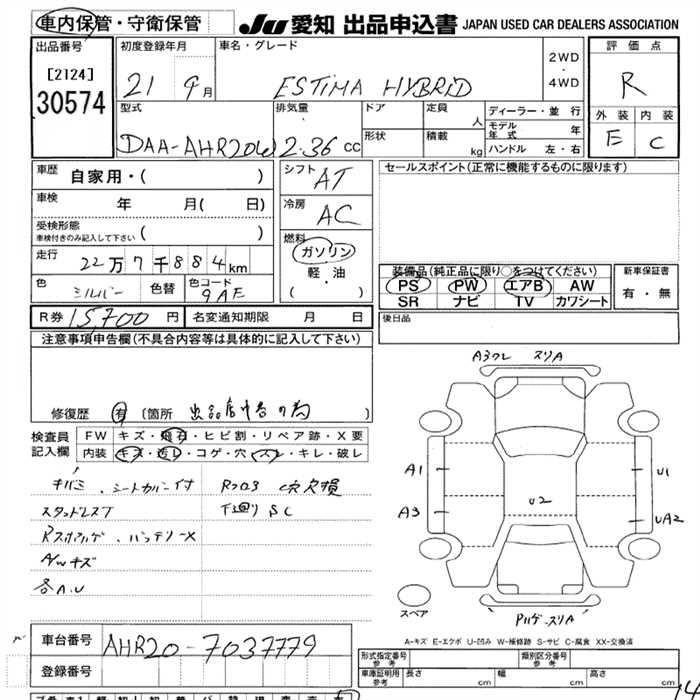 車内保管・守衛保管
JU 愛知 出品申込書 JAPAN USED CAR DEALERS ASSOCIATION
出品番号
[2124]
30574
初度登録年月
21 9月
車名・グレード
ESTIMA HYBRID
2WD
・
4WD
評価点
R
外装 内装
E C
型式
DAA-AHR20W
排気量
2.36 cc
ドア
形状
定員
人
積載
kg
ディーラー・並行
モデル年式 年
ハンドル 左・右
車歴 自家用・( )
車検 年 月( 日)
受検形態
車検付きのみ記入して下さい ( )
走行 22万7千884km
色 シルバー 色替 色コード 9AE
シフト AT
冷房 AC
燃料
ガソリン
軽・油
( )
セールスポイント(正常に機能するものに限ります)
装備品(純正品に限り○をつけてください)
PS PW エアB AW
SR ナビ TV カワシート
新車保証書
有・無
R券 15,700 円 名変通知期限 月 日
後日品
注意事項申告欄(不具合内容等は具体的に記入して下さい)
修復歴 有 [箇所 出品店申告の為 ]
検査員記入欄
FW キズ・飛石・ヒビ割・リペア跡・X要
内装 キズ・汚レ・コゲ・穴・スレ・キレ・破レ
キバミ、シートカバー付
スタッドレスT 下廻りSC
バッテリーX
A/Wキズ
各A.U
A3 スリA
A1
A3
U2
U1
UA2
スリA
スペア
A-キズ E-エクボ U-凹み W-補修跡 S-サビ C-腐食 XX-交換済
車台番号 AHR20-7037779
登録番号
形式指定番号 参考 類別区分番号 参考
車庫証明用 参考 長さ cm 幅 cm 高さ cm